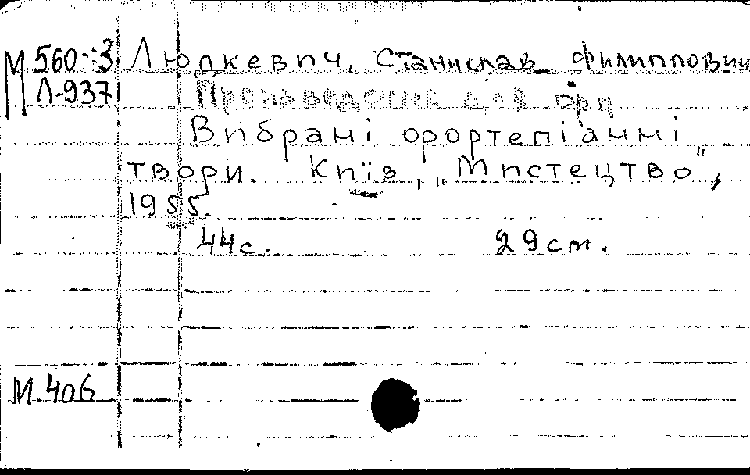 М 560-3 Людкевич, Станислав Филиппович
Л-937 Произведения для фп
Вибрані фортепіанні
твори. Київ, „Мистецтво",
1955.
44с. 29см.
М.406